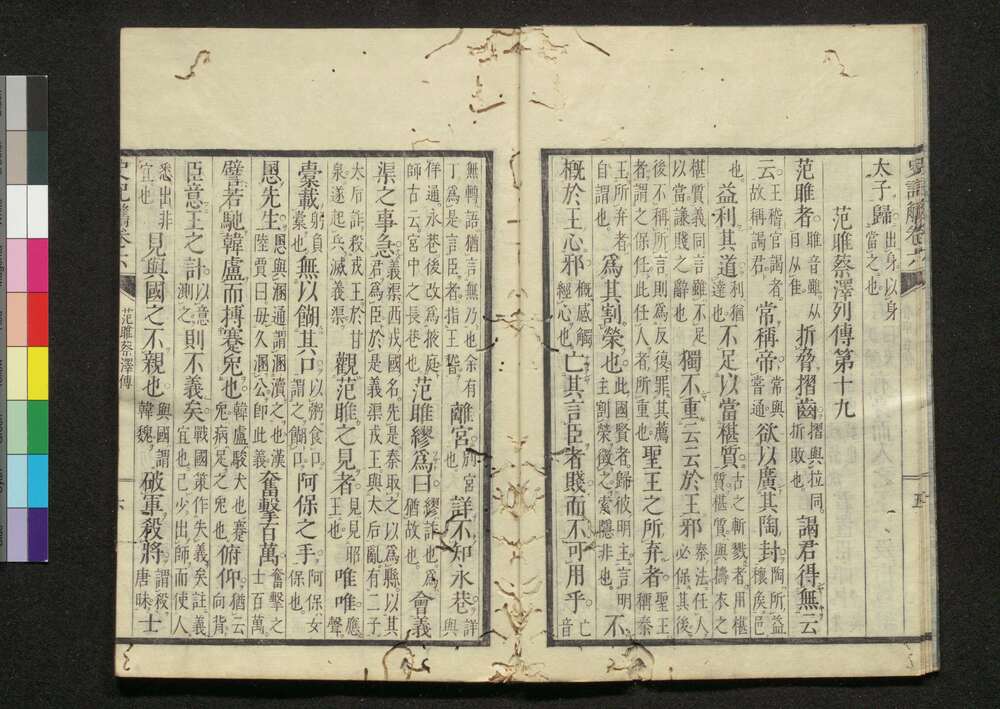 史記觽卷六 五
太子歸出身以身當之也
范雎蔡澤列傳第十九
范雎者雎音雖从目从隹折脅摺齒摺與拉同折敗也謁君得無云
云王稽官謁者故稱謁君常稱帝常與嘗通欲以廣其陶封陶所益穰侯邑
也益利其道利猶達也不足以當椹質古之斬戮者用椹質椹質與擣衣之
椹質義同言雖不足以當謙賤之辭也獨不重云云於王邪秦法任人必保其後
後不稱所言則為反復罪其薦者謂之保任此任人者所重也聖王之所弃者聖王所稱秦
王所弃者自謂也為其割榮也此國賢者歸彼明主言明主割榮徵之索隱非也不
概於王心邪概感觸經心也亡其言臣者賤而不可用乎亡音
無轉語猶言無乃也余有丁為是言臣者指王稽離宮別宮也詳不知永巷詳與
佯通永巷後改為掖庭師古云宮中之長巷也范雎繆為曰繆詐也為猶故也會義
渠之事急義渠西戎國名先是秦取之以為縣以其君為臣於是義渠戎王與太后亂有二子
太后詐殺戎王於甘泉遂起兵滅義渠觀范雎之見者見見昭王也唯唯應聲
橐載躬自橐也無以餬其口以粥食口謂之餬口阿保之手阿保女保也
慁先生慁與溷通謂溷瀆之也漢陸賈曰毋久溷公即此義奮擊百萬奮擊之士百萬
譬若馳韓盧而搏蹇兔也韓盧駿犬也蹇兔病足之兔也俯仰猶云向背
臣意王之計以意測之則不義矣戰國策作失義矣註義宜也己少出師而使人
悉出非宜也見與國之不親也與國謂韓魏破軍殺將謂殺唐眛士
史記觽卷六 范雎蔡澤傳 六